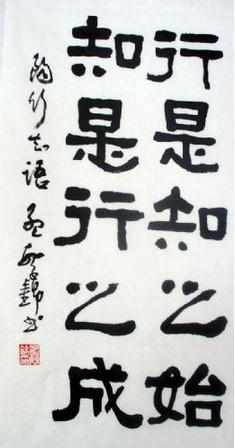 行是知之始
知是行之成
陶行知语 孟繁锦书